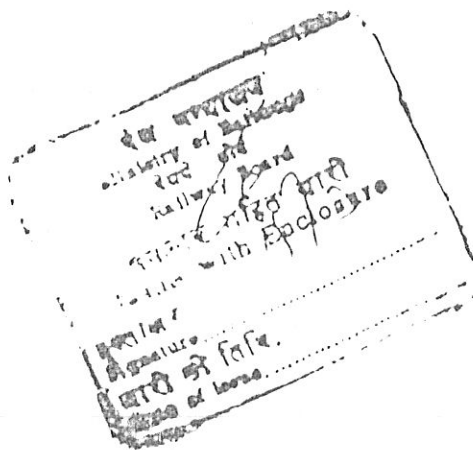 रेल मन्त्रालय
Ministry of Railways
रेलवे बोर्ड
Railway Board
सहित जारी
with Enclosure
हस्ताक्षर
Signature..............
जारी की तिथि.
Date of Issue..............